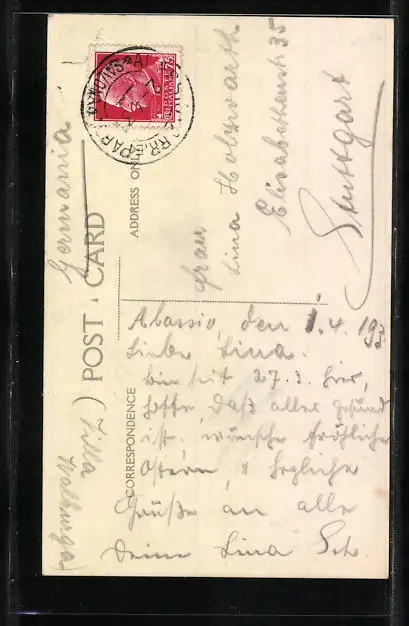 POST CARD
CORRESPONDENCE
ADDRESS ONLY
POSTE ITALIANE
75
Germania
Frau
Lina Holzwarth
Elisabethenstr 35
Stuttgart
Alassio, den 1.4.193
Liebe Lina.
bin seit 27.3. hier,
hoffe, daß alles gesund
ist, wünsche fröhliche
Ostern, & herzliche
Grüße an alle
Deine Lina Sch.
(Villa
Walburga)